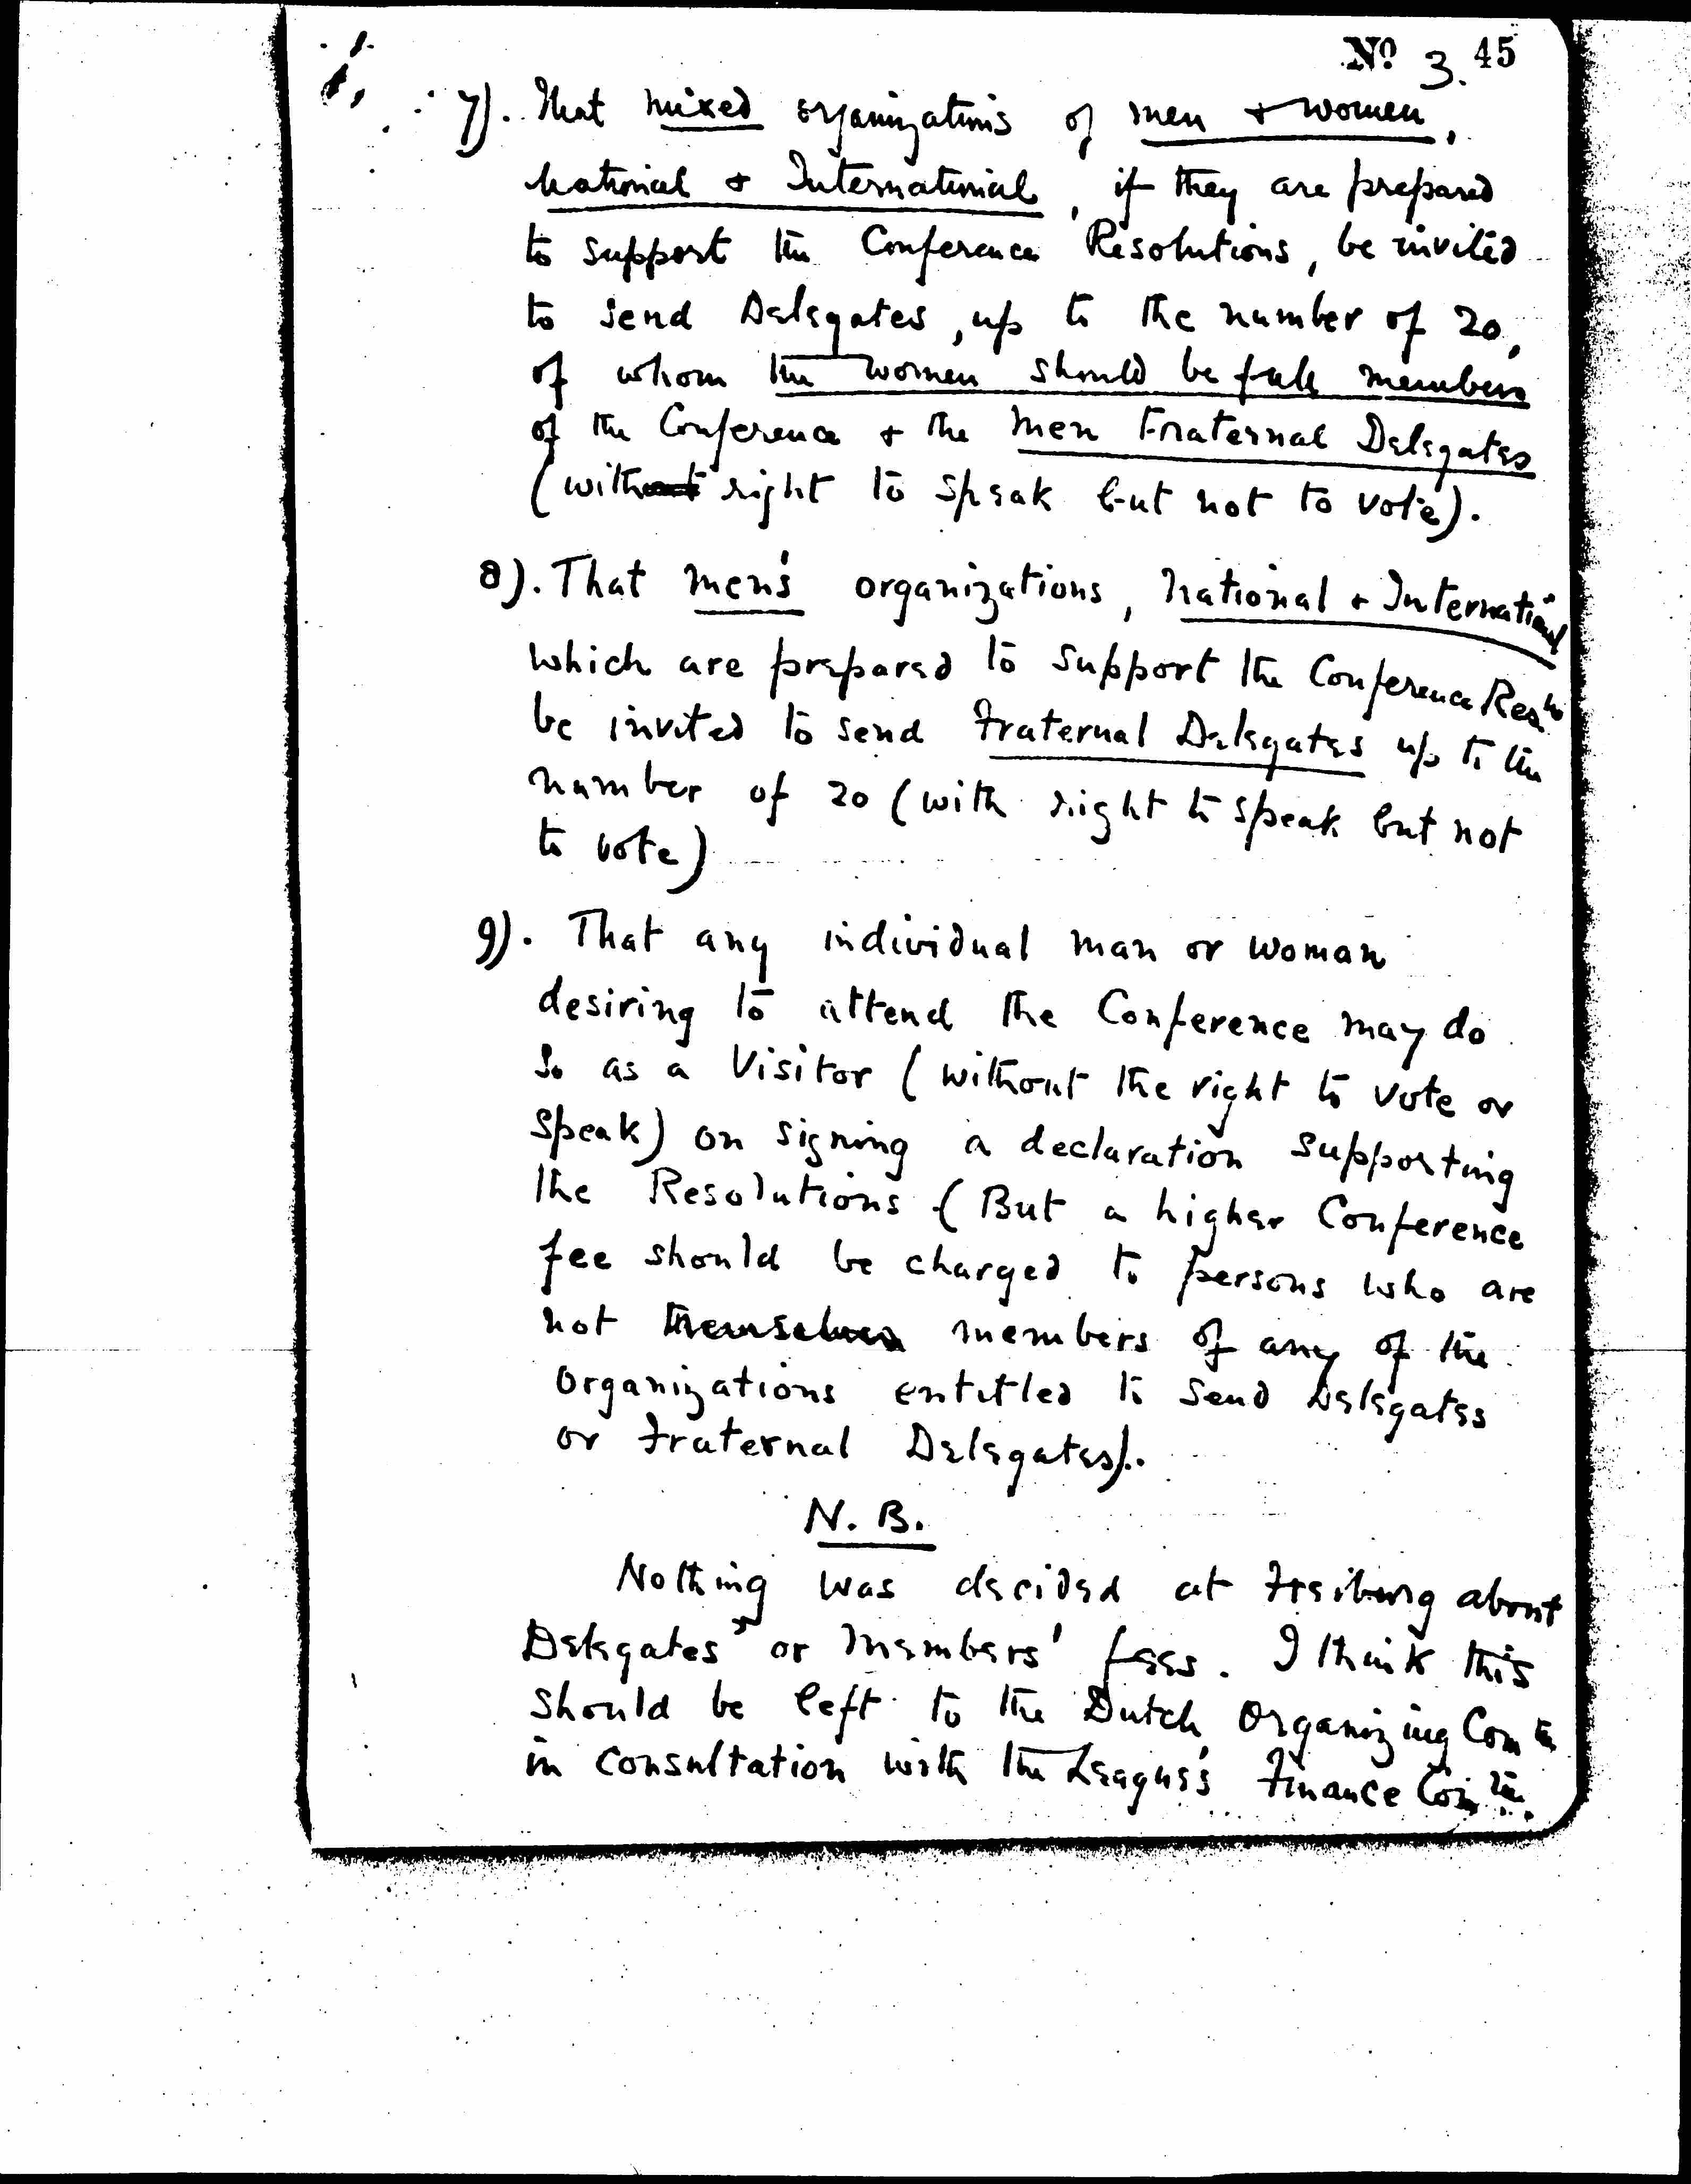 No 3. 45
7). That mixed organizations of men & women,
National & International, if they are prepared
to support the Conference Resolutions, be invited
to send Delegates, up to the number of 20,
of whom the women should be full members
of the Conference & the men Fraternal Delegates
(without right to speak but not to vote).
8). That men's organizations, National & International
which are prepared to support the Conference Resns
be invited to send Fraternal Delegates up to the
number of 20 (with right to speak but not
to vote)
9). That any individual man or woman
desiring to attend the Conference may do
so as a Visitor (without the right to vote or
speak) on signing a declaration supporting
the Resolutions (But a higher Conference
fee should be charged to persons who are
not themselves members of any of the
organizations entitled to send Delegates
or Fraternal Delegates).
N. B.
Nothing was decided at Freiburg about
Delegates' or Members' fees. I think this
should be left to the Dutch Organizing Comtee
in consultation with the League's Finance Comtee.